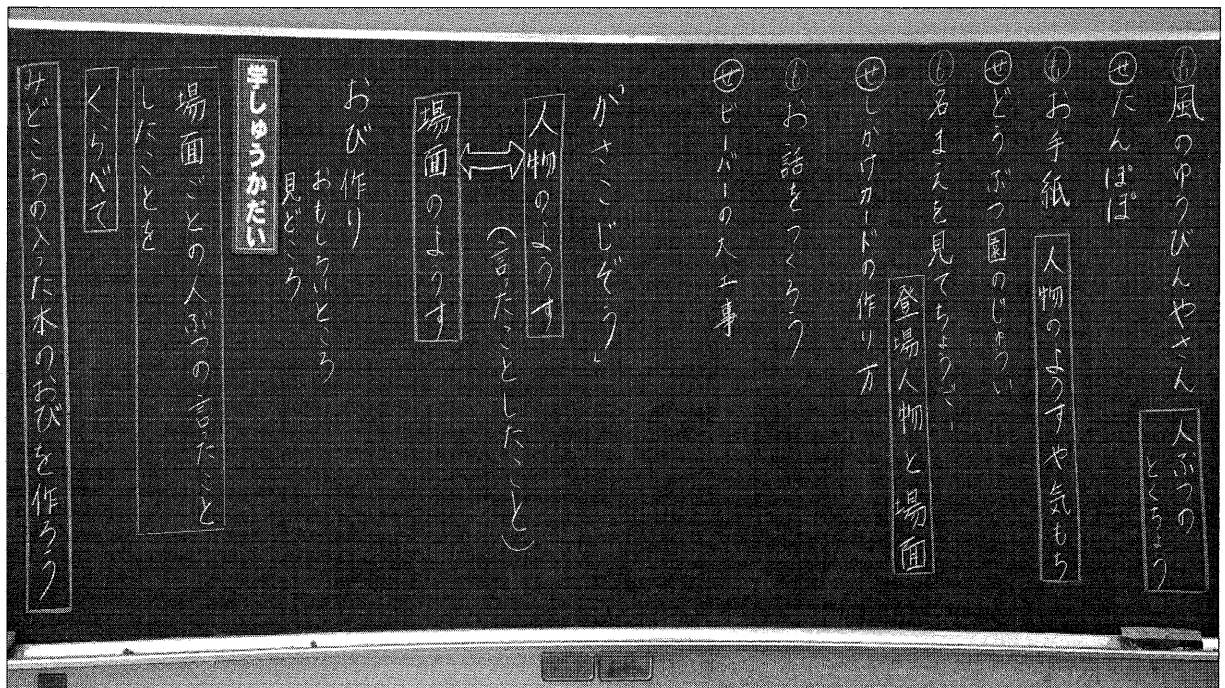 も 風のゆうびんやさん
人ぶつの
とくちょう
せ たんぽぽ
も お手紙
人物のようすや気もち
せ どうぶつ園のじゅうい
も 名まえを見てちょうだい
登場人物と場面
せ しかけカードの作り方
も お話をつくろう
せ ビーバーの大工事
かさこじぞう」
人物のようす
(言ったこと したこと)
場面のようす
おび作り
おもしろいところ
見どころ
学しゅうかだい
場面ごとの人ぶつの言ったこと
したことを
くらべて
みどころの入った本のおびを作ろう